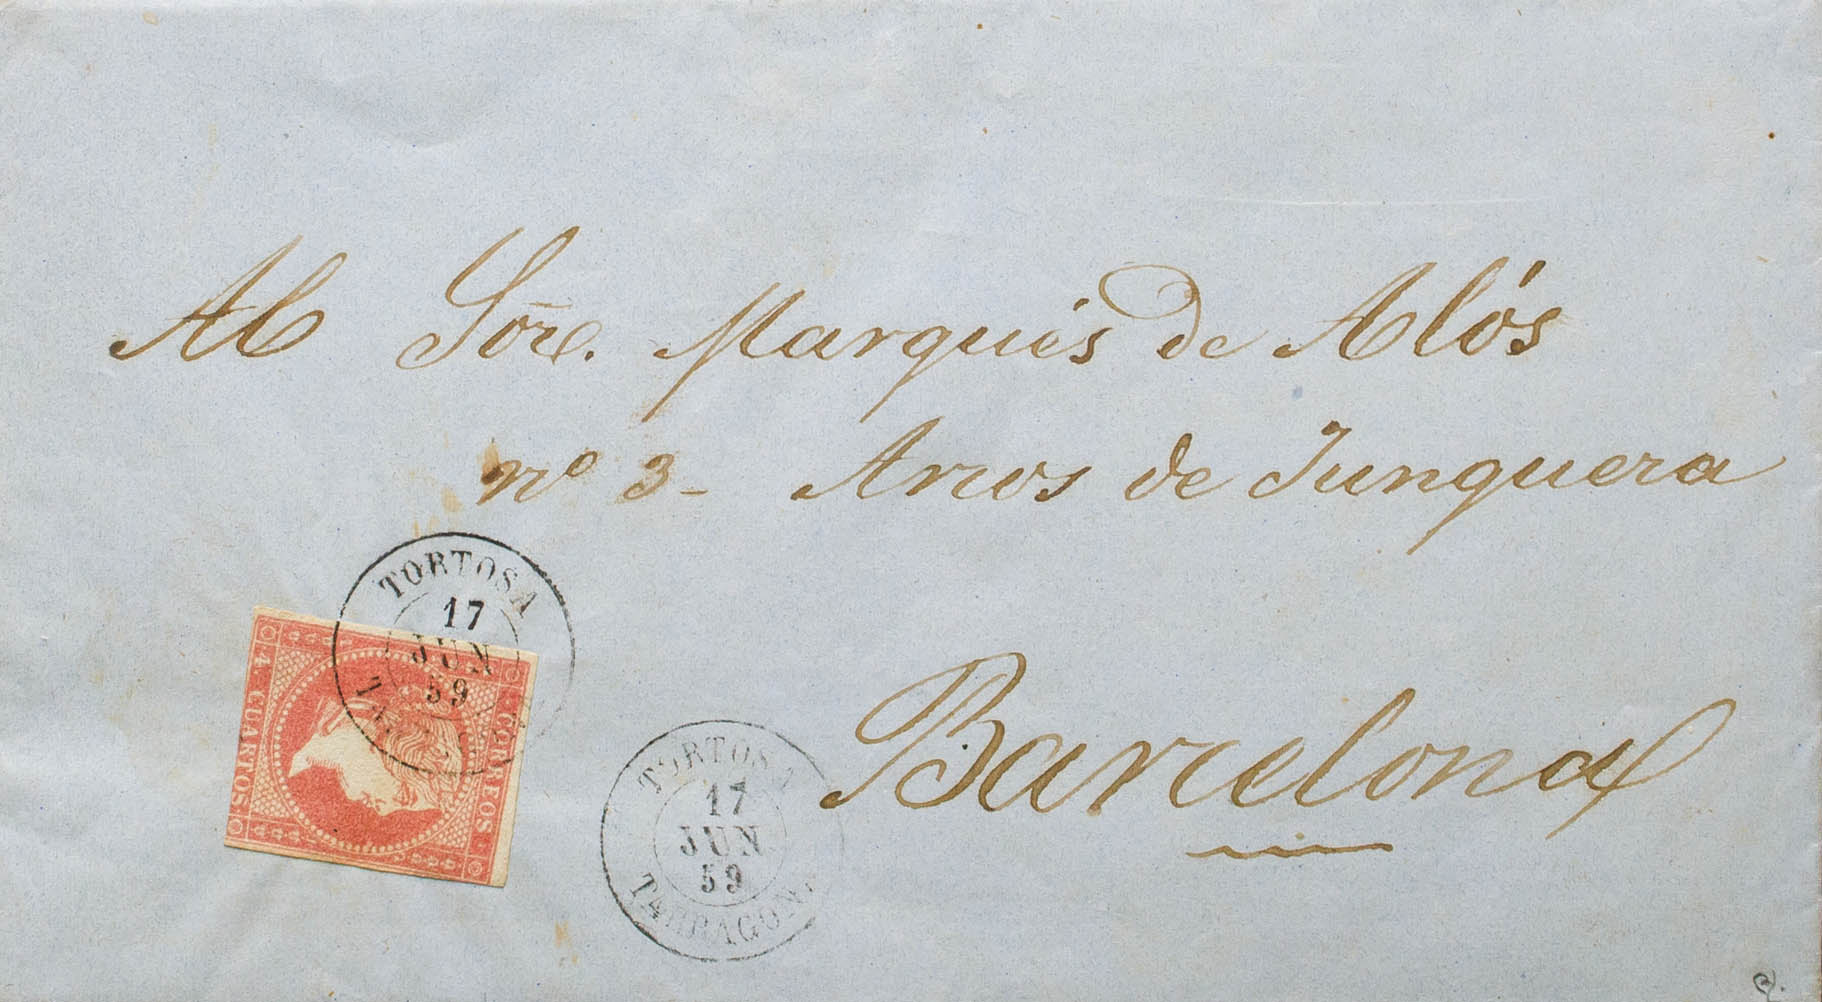 Al Sōre. Marqués de Alós
nº 3- Arcos de Junquera
Barcelona
TORTOSA
17
JUN
59
4 CUARTOS
CORREOS
TORTOSA
17
JUN
59
TARRAGONA